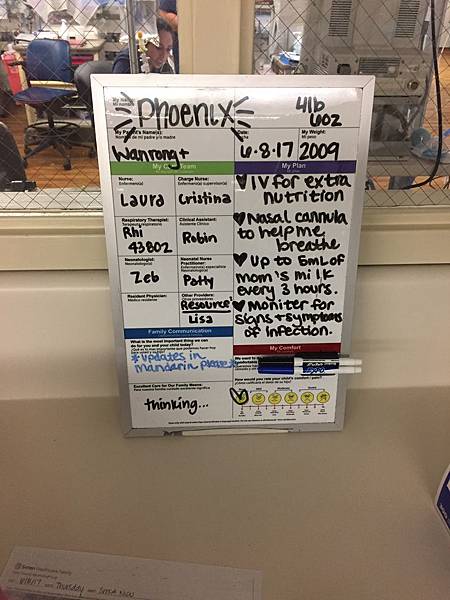 My Name:
Mi nombre
Phoenix
4lb
6oz
My Parent's Name(s):
Nombre de mi padre y/o madre
Wanrong +
Date:
Fecha
6.8.17
My Weight:
Mi peso
2009
My Care Team
Nurse:
Enfermero(a)
Laura
Charge Nurse:
Enfermero(a) supervisor(a)
Cristina
Respiratory Therapist:
Terapeuta respiratorio
Rhi
43802
Clinical Assistant:
Asistente Clínico
Robin
Neonatologist:
Neonatólogo(a)
Zeb
Neonatal Nurse
Practitioner:
Patty
Resident Physician:
Médico residente
Other Providers:
Resource
Lisa
My Plan
♥ IV for extra
nutrition
♥ Nasal cannula
to help me
breathe
♥ Up to 5mL of
mom's milk
every 3 hours.
♥ Moniter for
signs + symptoms
of infection.
Family Communication
What is the most important thing we can
do for you and your child today?
*Updates in
mandarin please
Excellent Care for Our Family Means:
thinking...
My Comfort
How would you rate your child's comfort
Thursday